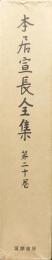 本居宣長全集
第二十巻
筑摩書房